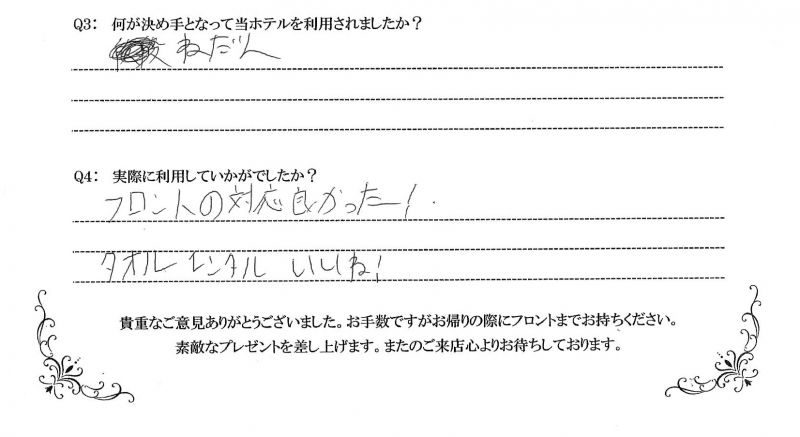 Q3: 何が決め手となって当ホテルを利用されましたか?
ねだん
Q4: 実際に利用していかがでしたか?
フロントの対応良かったー!
タオルレンタル いいね!
貴重なご意見ありがとうございました。お手数ですがお帰りの際にフロントまでお持ちください。
素敵なプレゼントを差し上げます。またのご来店心よりお待ちしております。